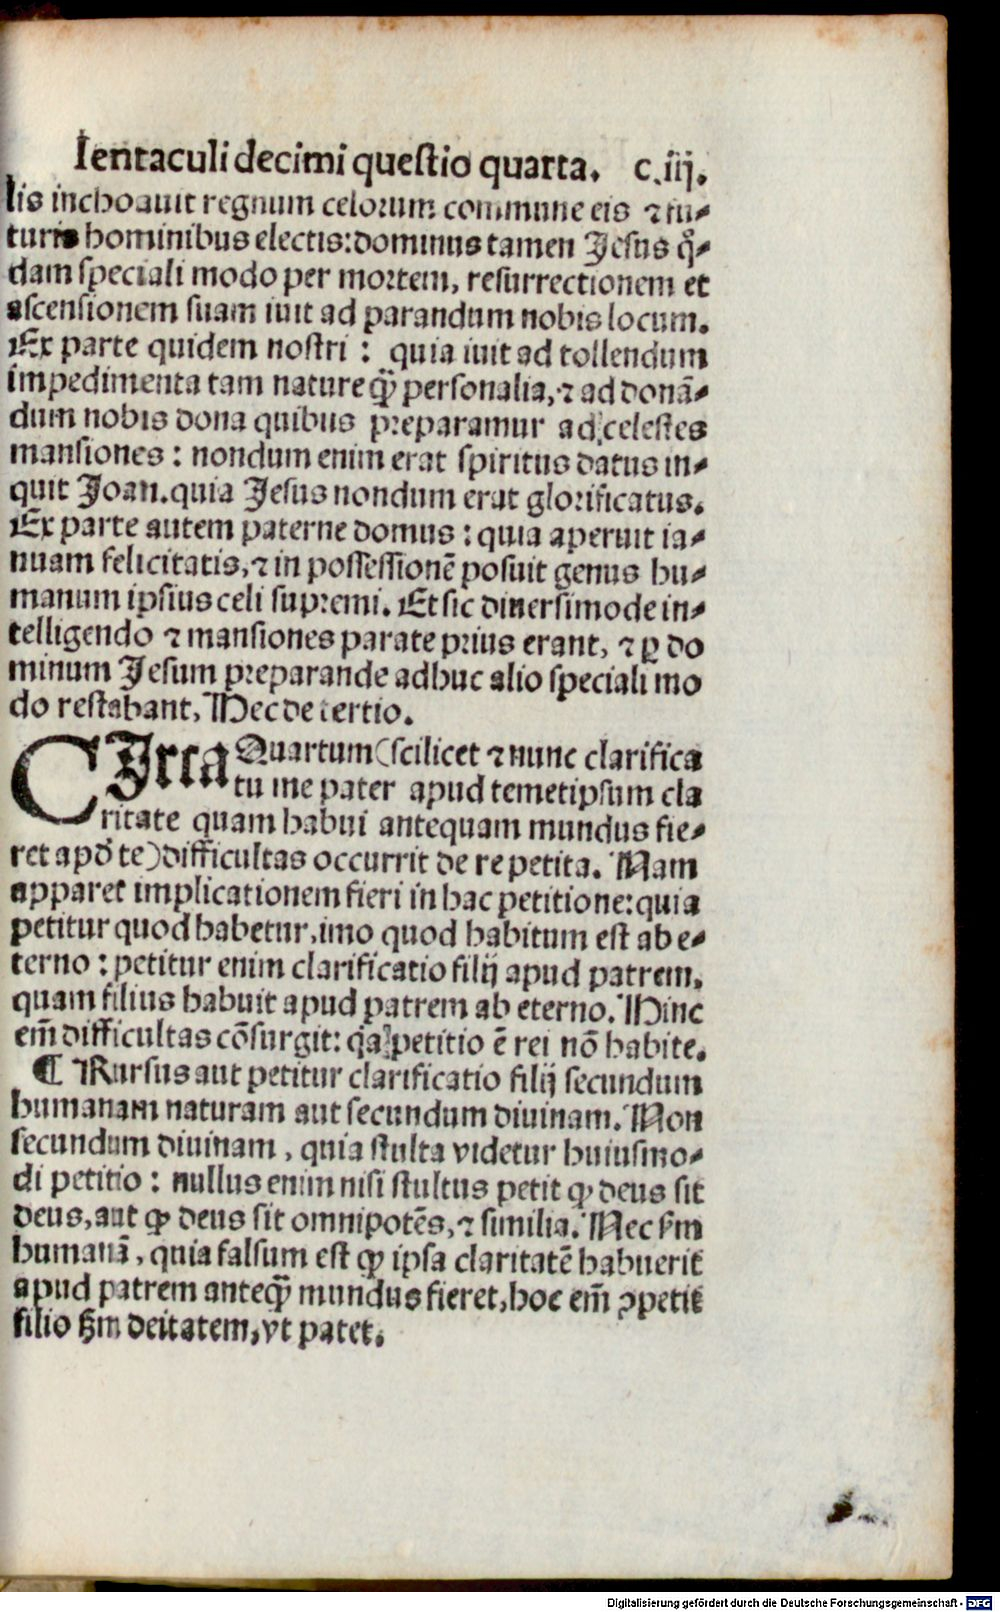 Ientaculi decimi questio quarta. c.iij.
lis inchoauit regnum celorum commune eis ⁊ fu⸗
turis hominibus electis: dominus tamen Jesus q̊⸗
dam speciali modo per mortem, resurrectionem et
ascensionem suam iuit ad parandum nobis locum.
Ex parte quidem nostri : quia iuit ad tollendum
impedimenta tam nature q̃ personalia, ⁊ ad donã⸗
dum nobis dona quibus preparamur ad celestes
mansiones : nondum enim erat spiritus datus in⸗
quit Joan. quia Jesus nondum erat glorificatus.
Ex parte autem paterne domus : quia aperuit ia⸗
nuam felicitatis, ⁊ in possessionẽ posuit genus hu⸗
manum ipsius celi supremi. Et sic diuersimode in⸗
telligendo ⁊ mansiones parate prius erant, ⁊ ꝑ do
minum Jesum preparande adhuc alio speciali mo
do restabant, Hec de tertio.
CIrca Quartum (scilicet ⁊ nunc clarifica
tu me pater apud temetipsum cla
ritate quam habui antequam mundus fie⸗
ret apd̓ te) difficultas occurrit de re petita. Nam
apparet implicationem fieri in hac petitione: quia
petitur quod habetur, imo quod habitum est ab e⸗
terno : petitur enim clarificatio filij apud patrem,
quam filius habuit apud patrem ab eterno. Hinc
em̃ difficultas cõsurgit: q̇a petitio ẽ rei nõ habite.
¶ Rursus aut petitur clarificatio filij secundum
humanam naturam aut secundum diuinam. Non
secundum diuinam, quia stulta videtur huiusmo⸗
di petitio : nullus enim nisi stultus petit ꝙ deus sit
deus, aut ꝙ deus sit omnipotẽs, ⁊ similia. Nec s̃m
humanã, quia falsum est ꝙ ipsa claritatẽ habuerit
apud patrem anteq̃ mundus fieret, hoc em̃ ꝓpetit
filio s̃m deitatem, vt patet.
Digitalisierung gefördert durch die Deutsche Forschungsgemeinschaft - DFG